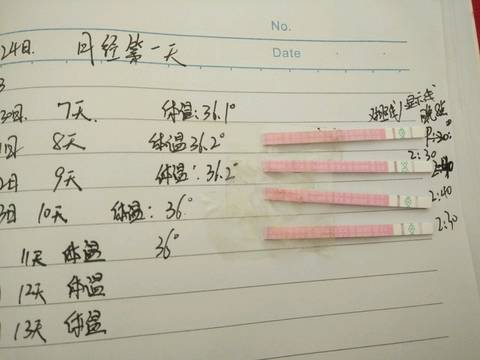 No.
24日. 月经第一天
Date
对照线/显示线
30日. 7天 体温:36.1°
1日 8天 体温 36.2°
2:30
2日 9天 体温:36.2°
2:40
3日 10天 体温:36°
2:30
11天 体温 36°
12天 体温
13天 体温